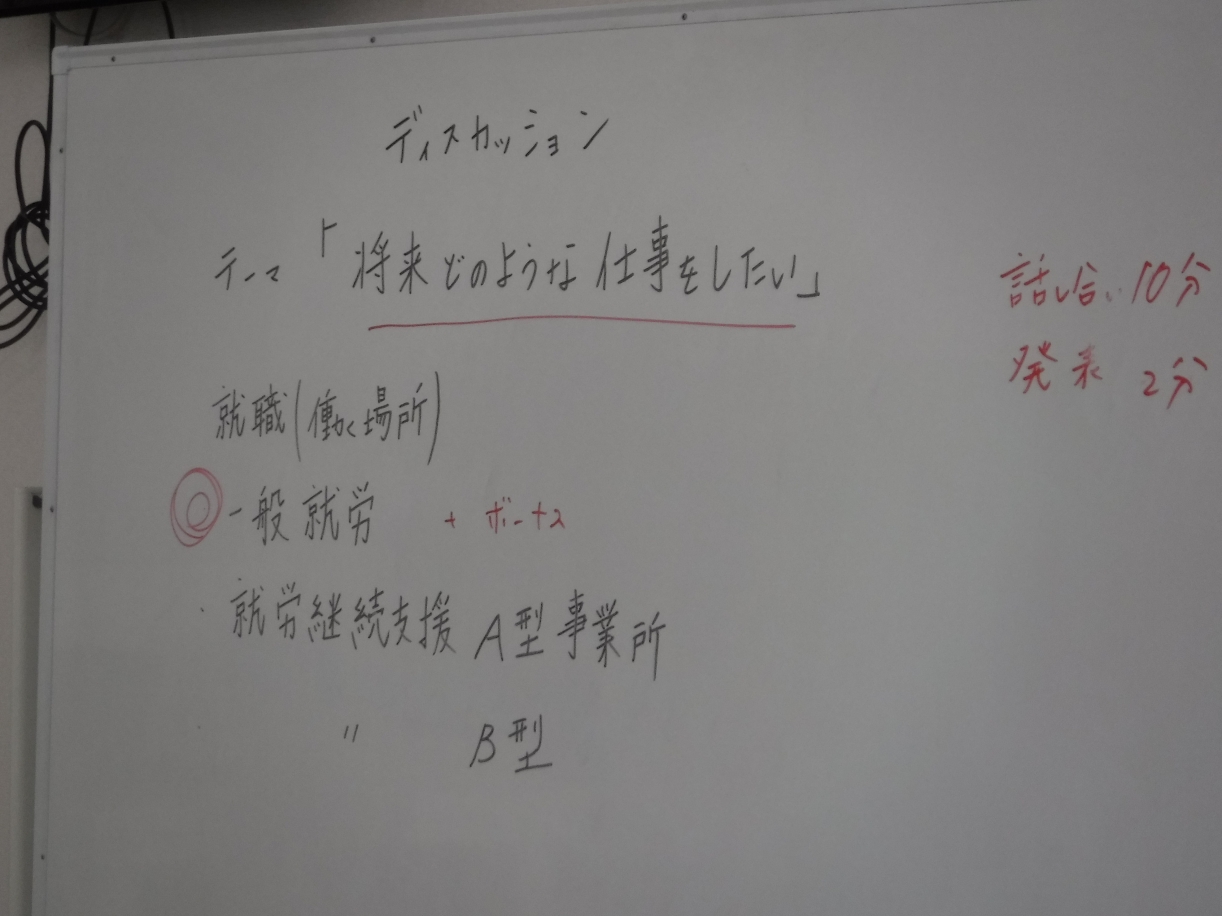 ディスカッション
テーマ「将来どのような仕事をしたい」
話し合い 10分
発表 2分
就職(働く場所)
◎一般就労 + ボーナス
・就労継続支援 A型事業所
・ 〃 B型